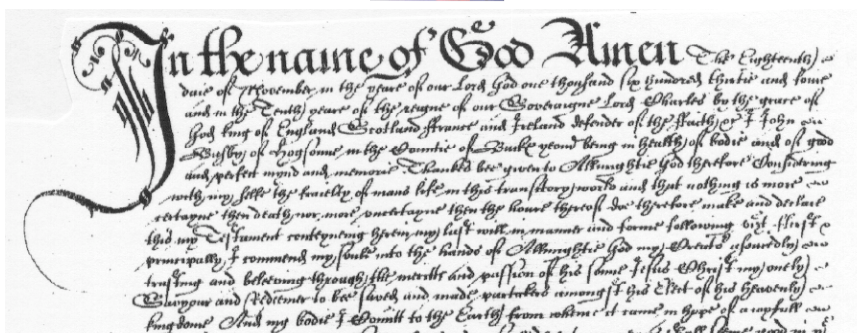 In the name of God Amen The Eighteenth
daie of November in the yeare of our Lord God one thousand six hundred thirtie and fowe
and in the Tenth yeare of the reigne of our Soveraigne Lord Charles by the grace of
God king of England Scotland ffrance and Ireland defender of the ffaith &c I John
Busby of Hogsonne in the Countie of Buck yeoman being in health of bodie and of good
and perfect mynd and memorie Thankes bee given to Allmightie God therefore Considering
with my selfe the frailty of mans life in this transitory world and that nothing is more
certayne then death nor more uncertayne then the houre thereof doe therefore make and declare
this my Testament conteyneing herein my last will in manner and forme following vizt. ffirst
principally I commend my soule into the hands of Allmightie God my Creator assuredly
trusting and beleeving through the merits and passion of his sonne Jesus Christ my onely
Saviour and Redeemer to bee saved and made partaker amongst his Elect of his heavenly
kingdome And my bodie I Comitt to the Earth from whence it came in hope of a joyfull